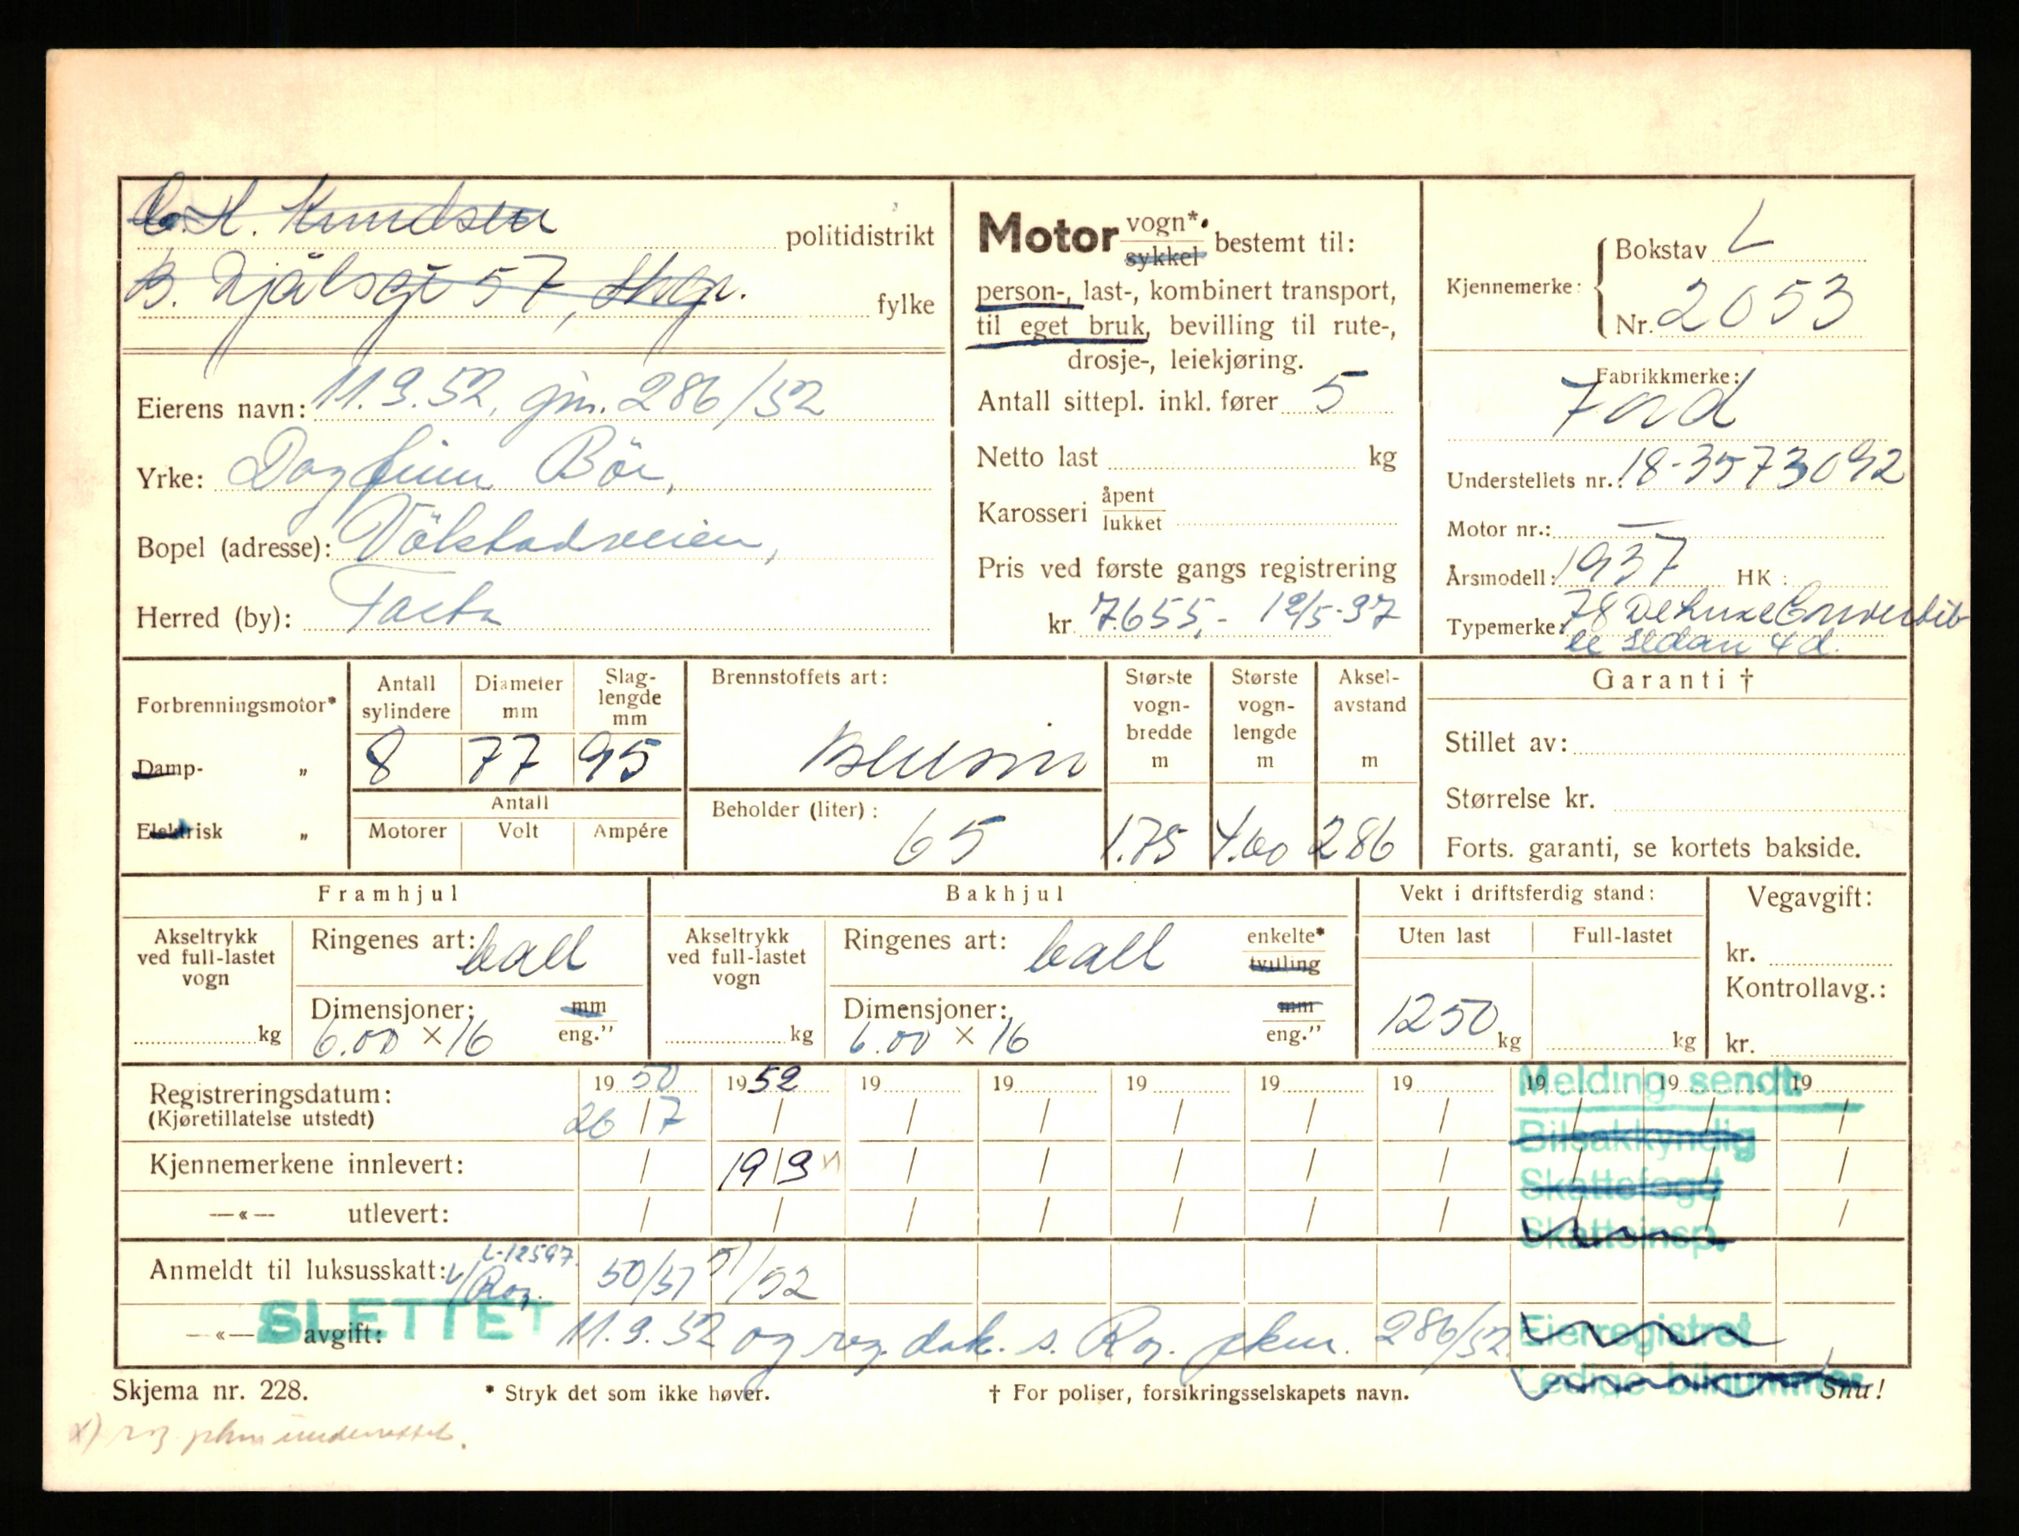 C. H. Knudsen politidistrikt
B. Njålsgt 57, Stvgr. fylke
Eierens navn: 11.9.52, jnr. 286/52
Yrke: Dagfinn Bör,
Bopel (adresse): Vålstadveien,
Herred (by): Tasta
Motor vogn*/sykkel bestemt til:
person-, last-, kombinert transport,
til eget bruk, bevilling til rute-,
drosje-, leiekjøring.
Antall sittepl. inkl. fører 5
Netto last kg
Karosseri åpent/lukket
Pris ved første gangs registrering
kr 7.655,- 12/5-37
Kjennemerke: Bokstav L
Nr. 2053
Fabrikkmerke:
Ford
Understellets nr.: 18-3573092
Motor nr.: —
Årsmodell: 1937 HK:
Typemerke: 78 De Luxe Convertib
le Sedan 4 d.
Forbrenningsmotor*
Damp- „
Elektrisk „
Antall sylindere Diameter mm Slaglengde mm
8 77 95
Antall
Motorer Volt Ampére
Brennstoffets art:
Bensin
Beholder (liter):
65
Største vognbredde m Største vognlengde m Akselavstand m
1.75 4.60 286
Garanti †
Stillet av:
Størrelse kr.
Forts. garanti, se kortets bakside.
Framhjul
Akseltrykk ved full-lastet vogn kg
Ringenes art: ball
Dimensjoner: mm/eng.”
6.00 × 16
Bakhjul
Akseltrykk ved full-lastet vogn kg
Ringenes art: ball enkelte*/tvilling
Dimensjoner: mm/eng.”
6.00 × 16
Vekt i driftsferdig stand:
Uten last Full-lastet
1250 kg kg
Vegavgift:
kr.
Kontrollavg.:
kr.
Registreringsdatum: 1950 1952 19 19 19 19 19 19 19 19
(Kjøretillatelse utstedt) 26/7 / / / / / / / / /
Kjennemerkene innlevert: / 19/9 x) / / / / / / / /
—«— utlevert: / / / / / / / / / /
L-12597
Anmeldt til luksusskatt: 50/51 51/52
—«— avgift: 11.9.52 og reg. dok. s. Rog. pkm. 286/52
SLETTET
Melding sendt:
Bilsakkyndig
Skattefogd
Skatteinsp.
Eierregistret
Ledige bilnummer
Skjema nr. 228. * Stryk det som ikke høver. † For poliser, forsikringsselskapets navn. Snu!
x) Rog pkm underrettet.